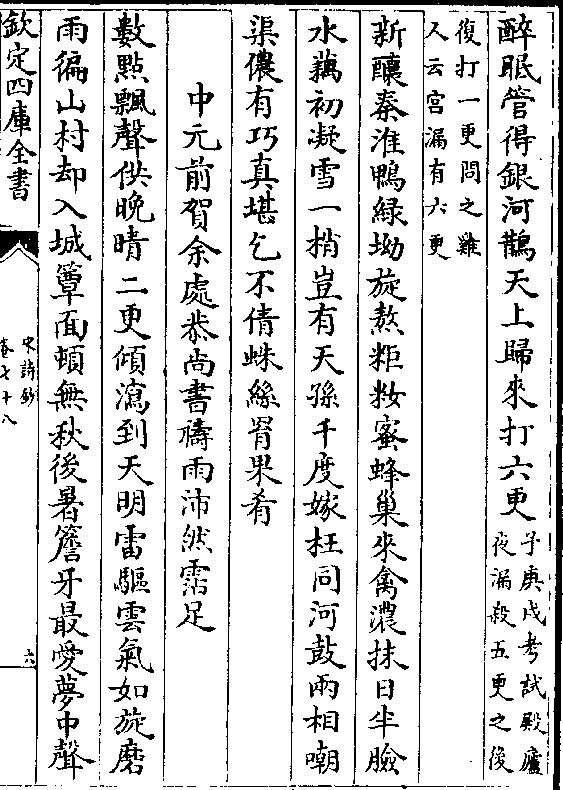 醉眠管得銀河鵲天上歸來打六更予庚戌考試殿廬夜漏殺五更之後
復打一更問之雞人云宮漏有六更
新釀秦淮鴨緑坳旋熬粔籹蜜蜂巢來禽濃抹日半臉
水藕初凝雪一梢豈有天孫千度嫁枉同河鼓兩相嘲
渠儂有巧真堪乞不倩蛛絲罥果肴
中元前賀余處恭尚書禱雨沛然霑足
數點飄聲供晩晴二更傾瀉到天明雷驅雲氣如旋磨
雨徧山村却入城簟面頓無秋後暑簷牙最愛夢中聲
欽定四庫全書
宋詩鈔
卷七十八
六